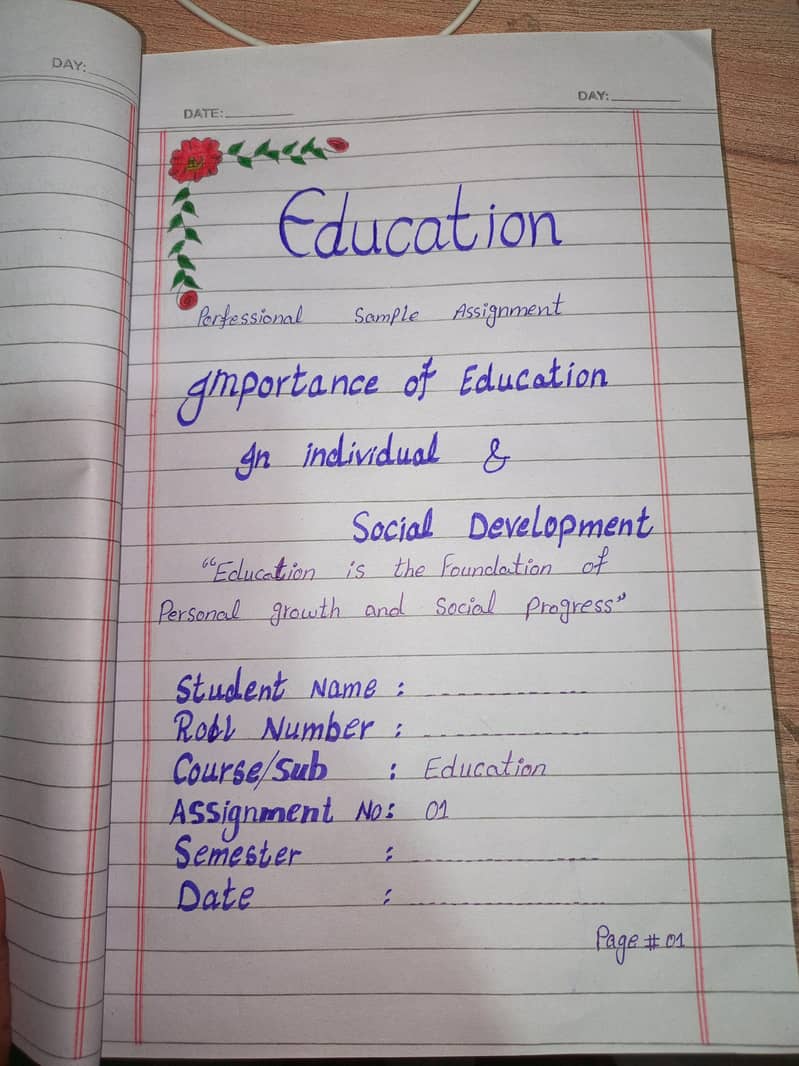 DAY:
DATE:
DAY:
Education
Perfessional Sample Assignment
Importance of Education
In individual &
Social Development
"Education is the Foundation of
Personal growth and Social Progress"
Student Name :
Roll Number :
Course/Sub : Education
Assignment No: 01
Semester :
Date :
Page # 01